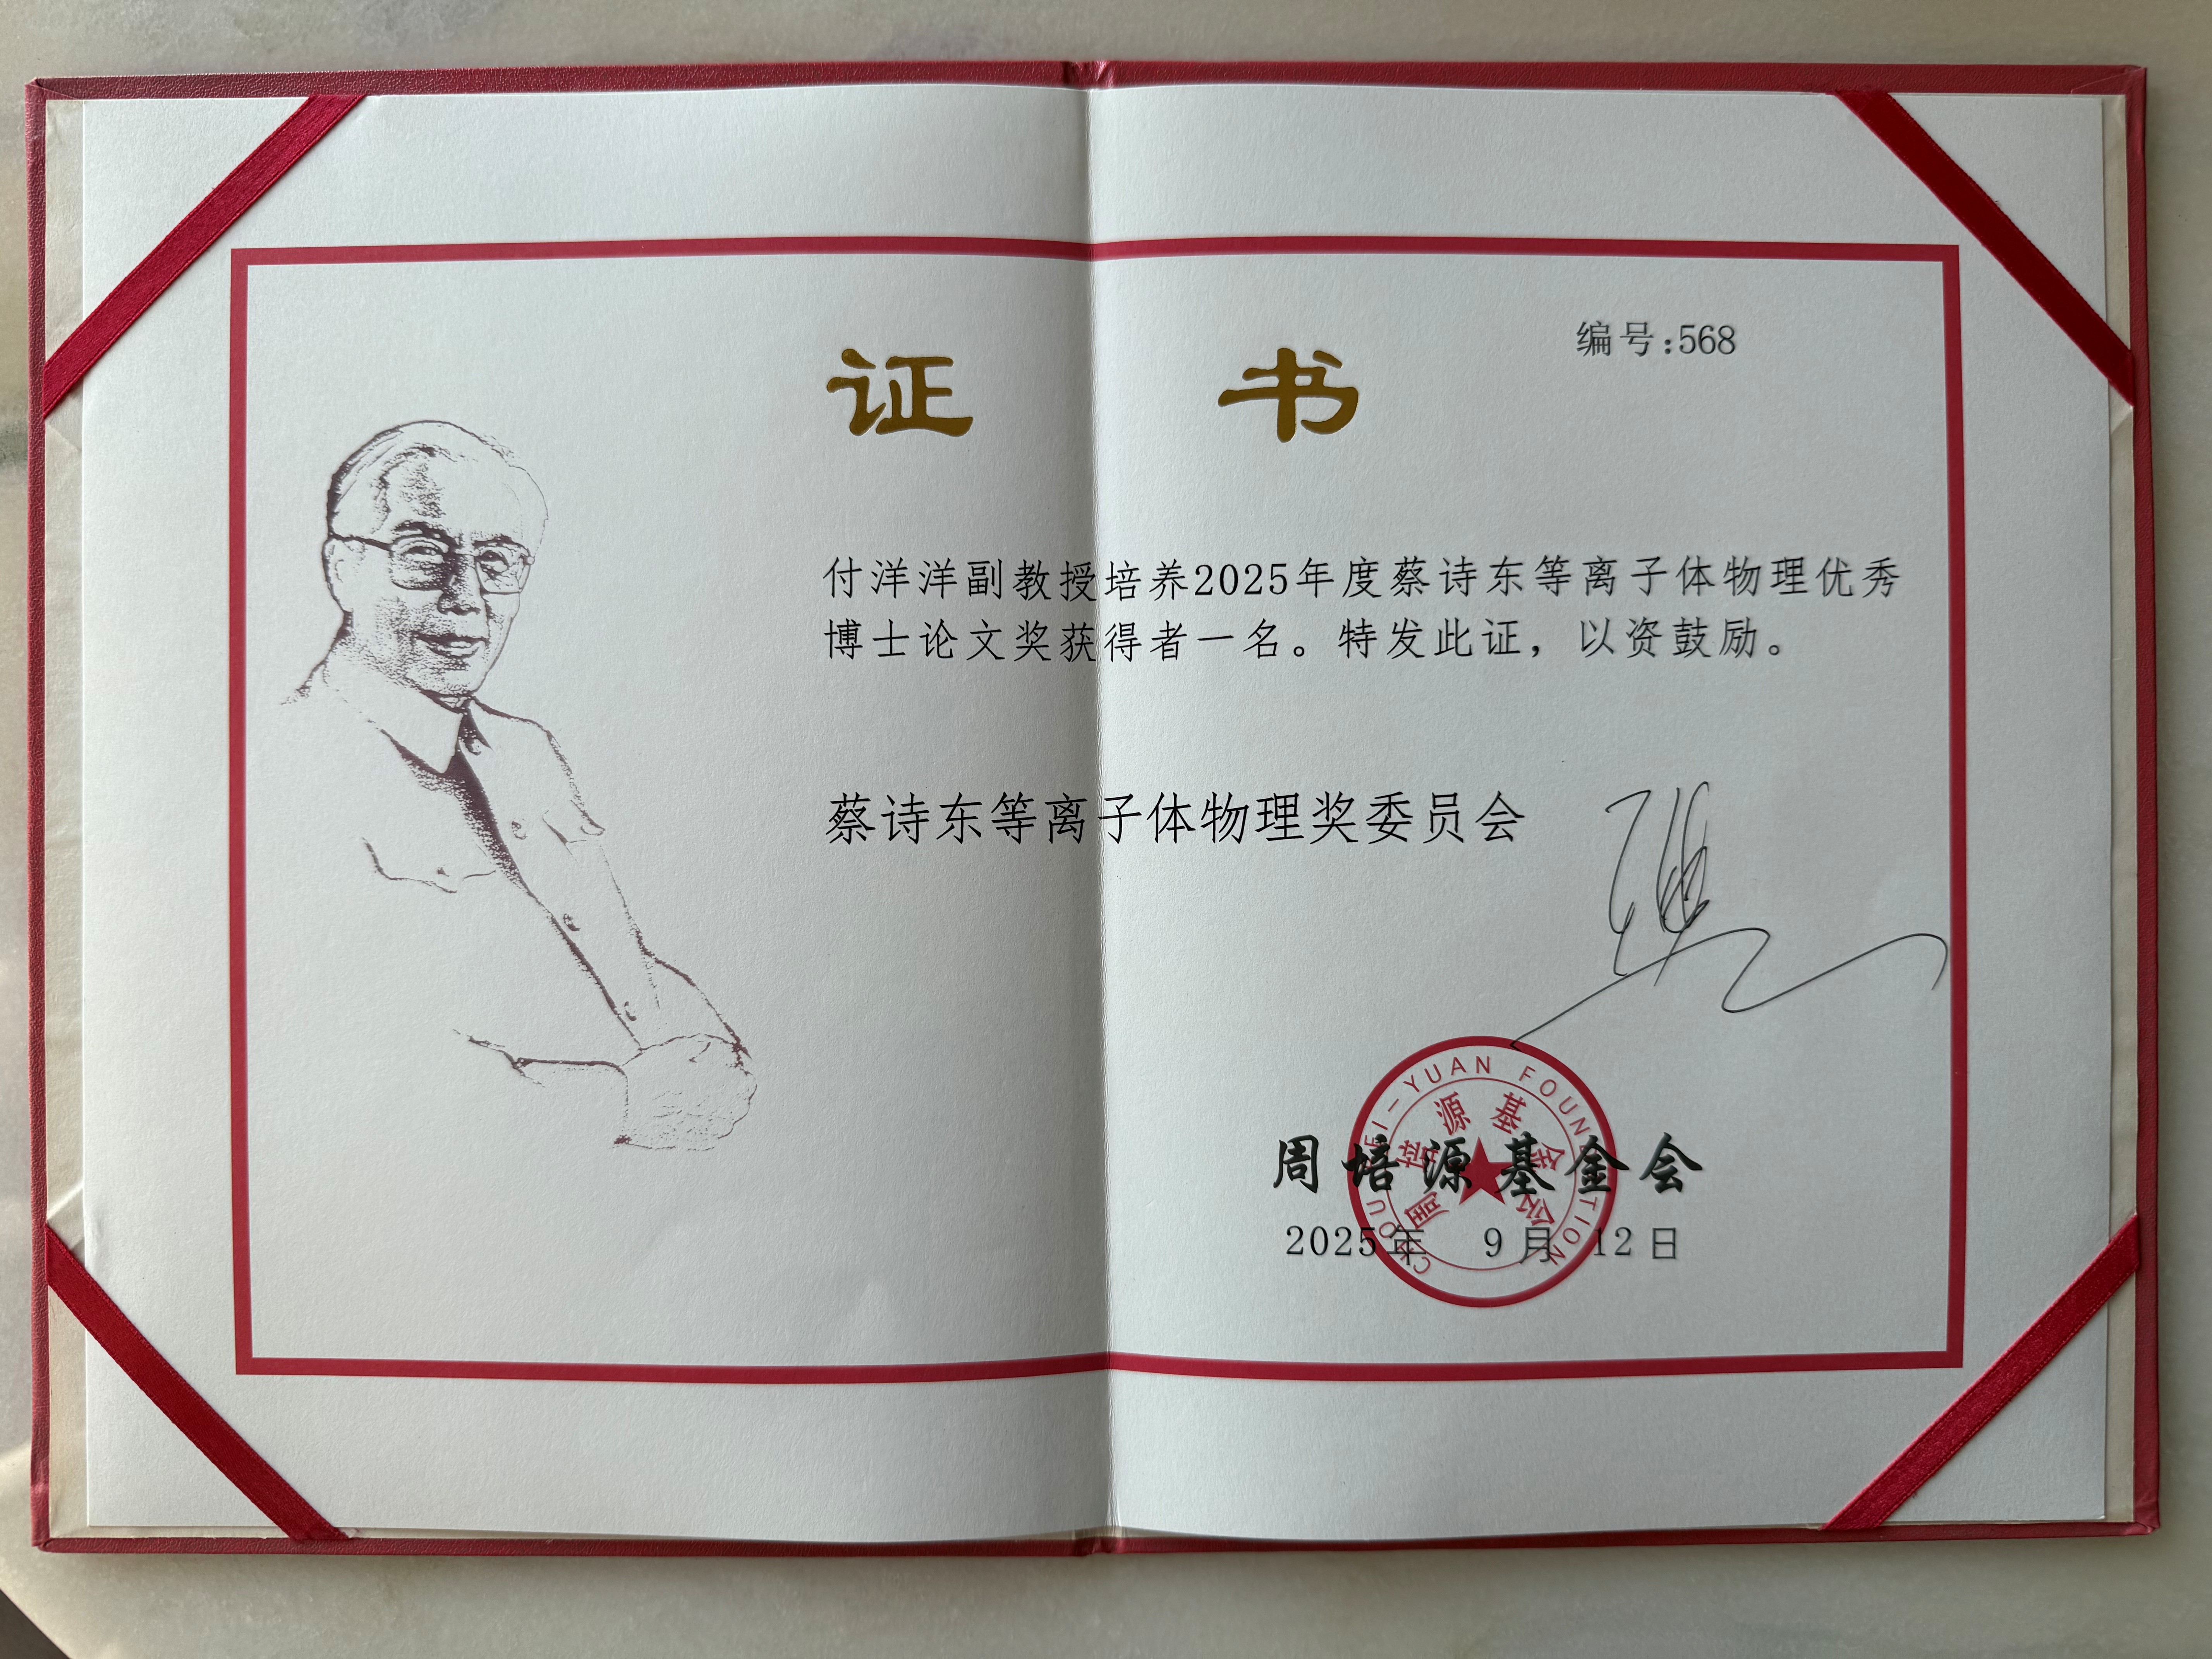 证 书
编号:568
付洋洋副教授培养2025年度蔡诗东等离子体物理优秀
博士论文奖获得者一名。特发此证，以资鼓励。
蔡诗东等离子体物理奖委员会
CHOU PEI-YUAN FOUNDATION
周培源基金会
周培源基金会
2025年 9月 12日